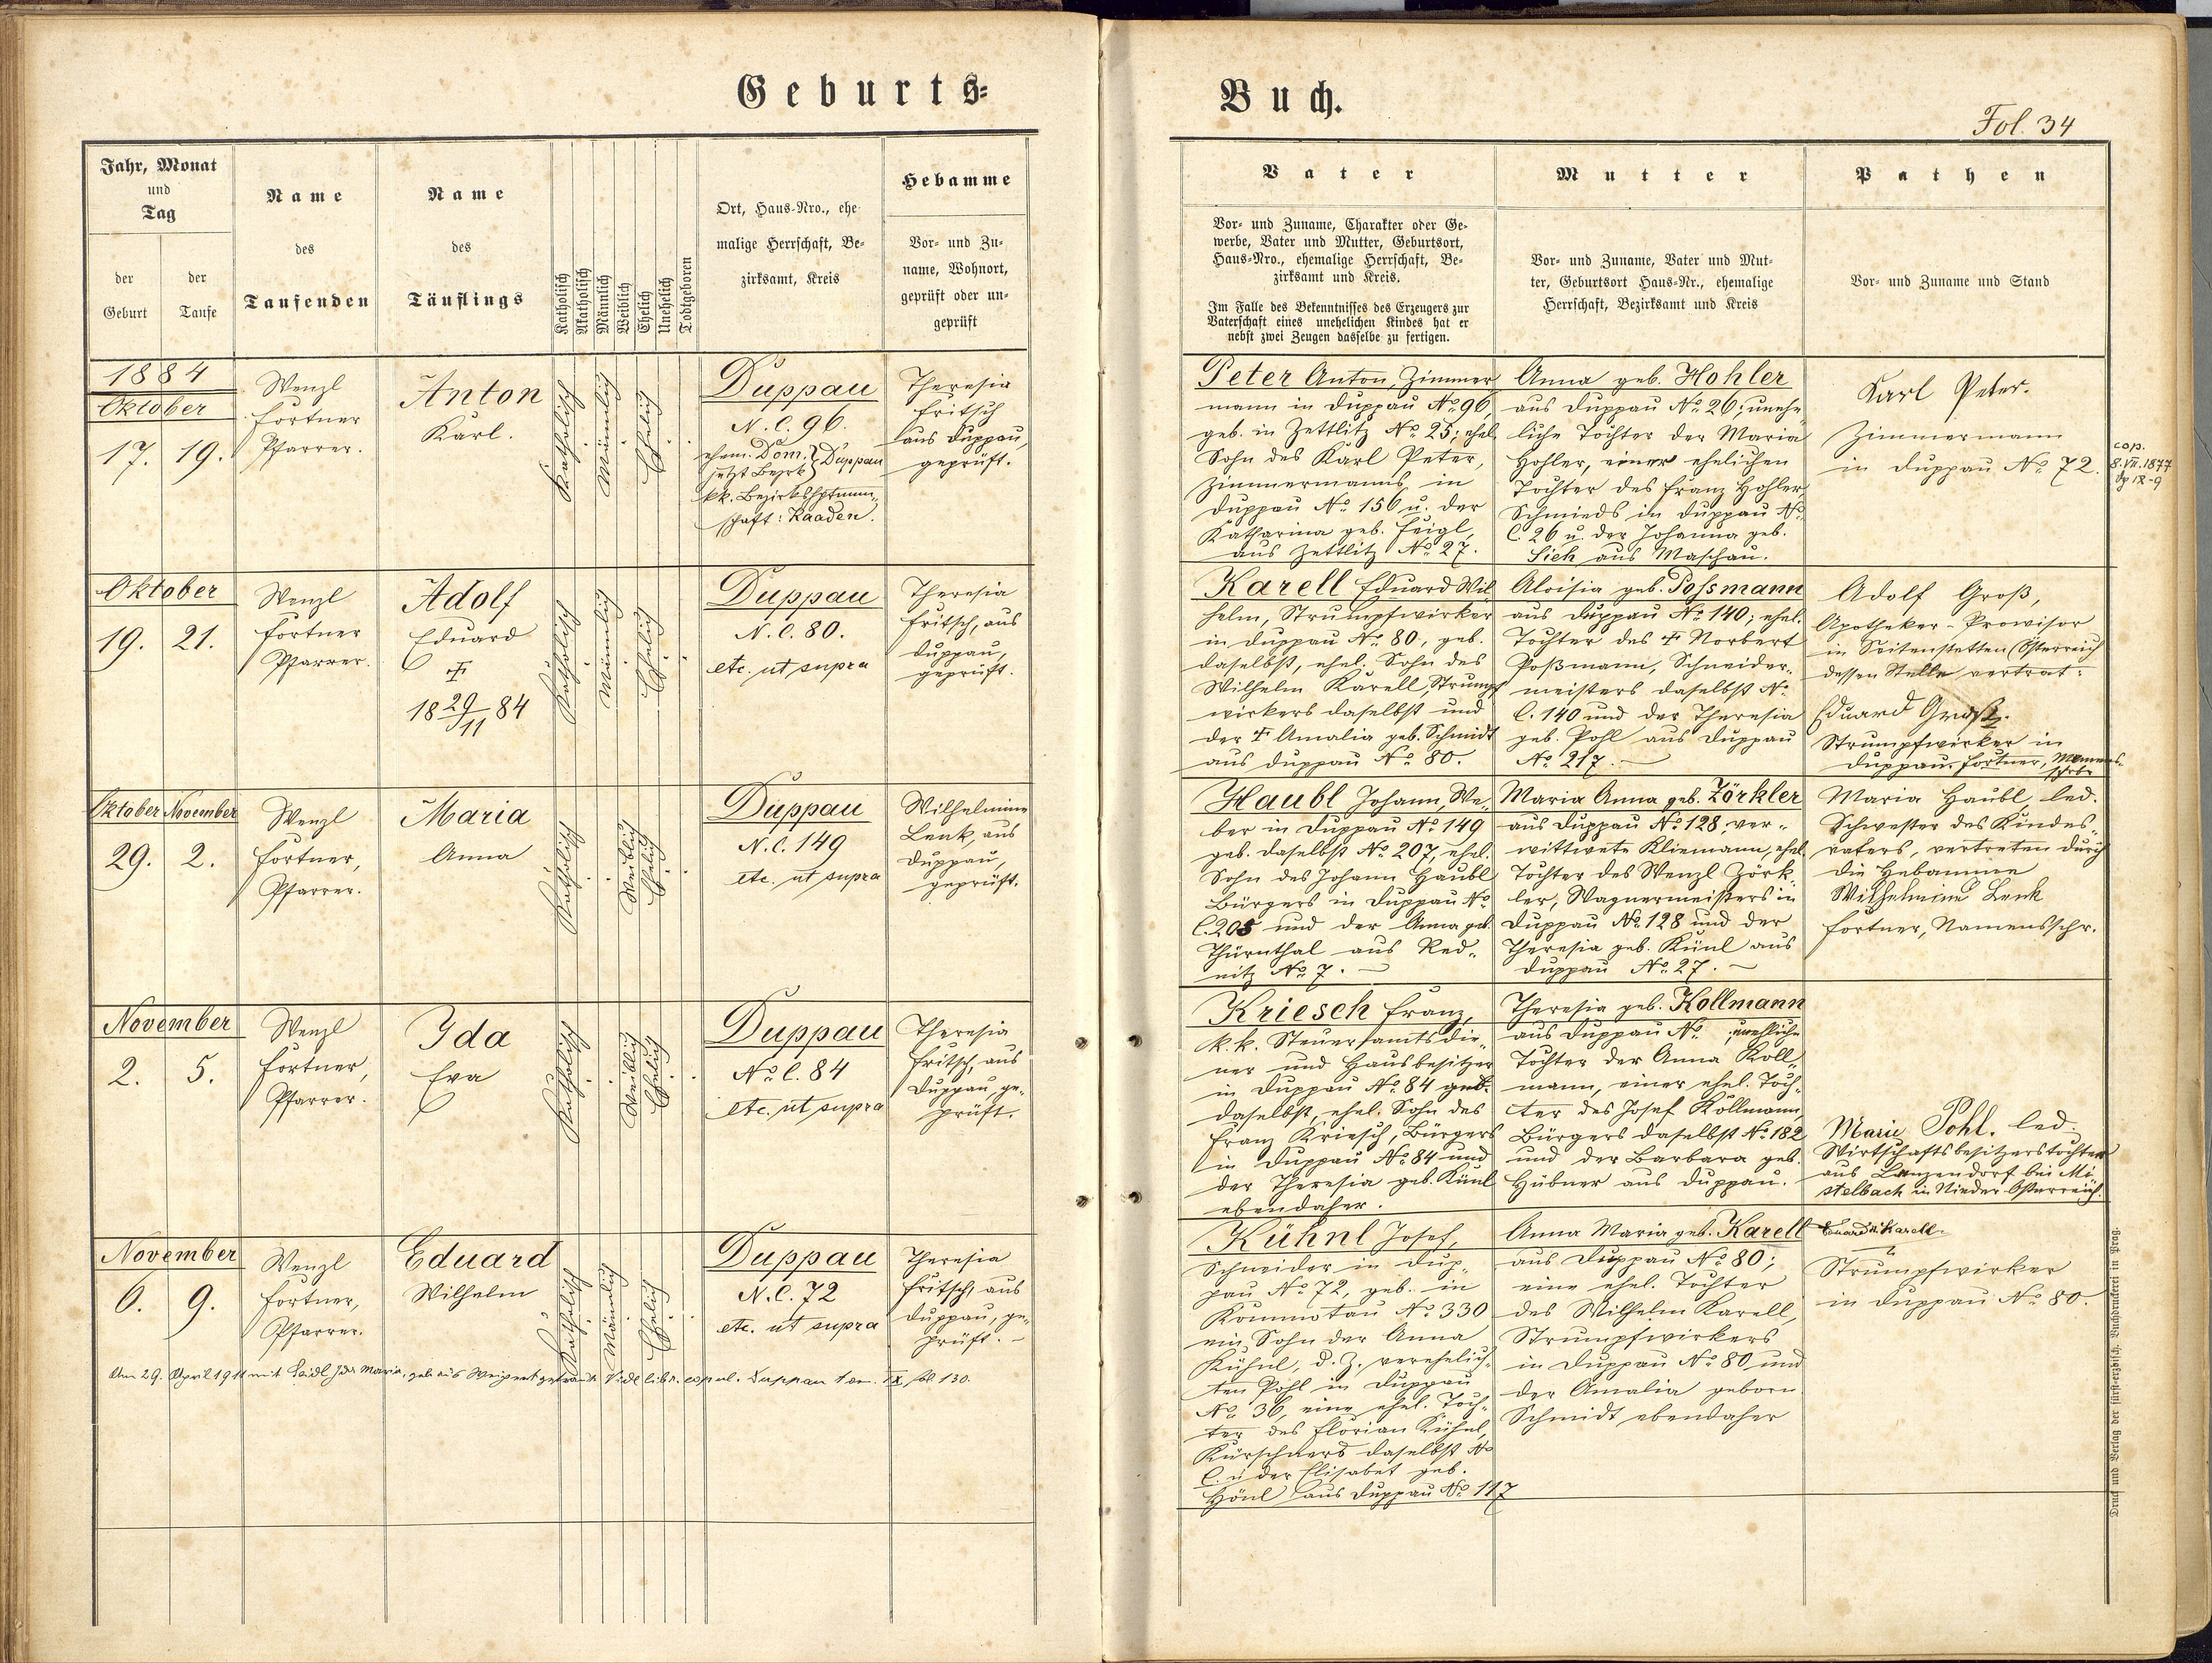 Geburts=
Buch.
Fol. 34
Jahr, Monat
und
Tag
der
Geburt
der
Taufe
Name
des
Taufenden
Name
des
Täuflings
Katholisch
Akatholisch
Männlich
Weiblich
Ehelich
Unehelich
Todtgeboren
Ort, Haus-Nro., ehe-
malige Herrschaft, Be-
zirksamt, Kreis
Hebamme
Vor- und Zu-
name, Wohnort,
geprüft oder un-
geprüft
Vater
Vor- und Zuname, Charakter oder Ge-
werbe, Vater und Mutter, Geburtsort,
Haus-Nro., ehemalige Herrschaft, Be-
zirksamt und Kreis.
Im Falle des Bekenntnisses des Erzeugers zur
Vaterschaft eines unehelichen Kindes hat er
nebst zwei Zeugen dasselbe zu fertigen.
Mutter
Vor- und Zuname, Vater und Mut-
ter, Geburtsort Haus-Nr., ehemalige
Herrschaft, Bezirksamt und Kreis
Pathen
Vor- und Zuname und Stand
1884
Oktober
17. 19.
Wenzl
Fortner
Pfarrer.
Anton
Karl.
Katholisch
Männlich
Ehelich
Duppau
N. C. 96.
ehem. Dom. } Duppau
jetzt Bezrk
kk. Bezirkshptmm„
schaft: Kaaden.
Theresia
Fritsch
aus Duppau,
geprüft.
Peter Anton, Zimmer
mann in Duppau No. 96,
geb. in Zettlitz No. 25; ehel.
Sohn des Karl Peter,
Zimmermanns, in
Duppau No. 156 u. der
Katharina geb. Feigl,
aus Zettlitz No. 27.
Anna geb. Hohler
aus Duppau No. 26; unehe
liche Tochter der Maria
Hohler, einer ehelichen
Tochter des Franz Hohler,
Schmieds in Duppau N.
C. 26 u. der Johanna geb.
Sieh aus Maschau.
Karl Peter.
Zimmermann
in Duppau No. 72.
cop.
8.VII.1877
Oktober
19. 21.
Wenzl
Fortner
Pfarrer.
Adolf
Eduard
†
18 29/11 84
Katholisch
Männlich
Ehelich
Duppau
N. C. 80.
etc. ut supra
Theresia
Fritsch, aus
Duppau,
geprüft.
Karell Eduard Wil
helm, Strumpfwirker
in Duppau No. 80, geb.
daselbst, ehel. Sohn des
Wilhelm Karell, Strumpf
wirkers daselbst und
der † Amalia geb. Schmidt
aus Duppau No. 80.
Aloisia geb. Possmann
aus Duppau No. 140; ehel.
Tochter des † Norbert
Poßmann, Schneider„
meisters daselbst N.
C. 140 und der Theresia
geb. Pohl aus Duppau
No. 217.
Adolf Groß,
Apotheker-Provisor
in Seitenstetten (Österreich
dessen Stelle vertrat:
Eduard Groß.
Strumpfwirker in
Duppau. Fortner, Namens-
schrbr
Oktober November
29. 2.
Wenzl
Fortner,
Pfarrer.
Maria
Anna
Katholisch
Weiblich
Ehelich
Duppau
N. C. 149
etc. ut supra
Wilhelmine
Lenk, aus
Duppau,
geprüft.
Haubl Johann, We„
ber in Duppau No. 149
geb. daselbst No. 207, ehel.
Sohn des Johann Haubl
Bürgers in Duppau N.
C. 205 und der Anna geb.
Thürnthal aus Red„
nitz No. 7.
Maria Anna geb. Zörkler
aus Duppau No. 128, ver„
wittwete Kliemann, ehel.
Tochter des Wenzl Zörk„
ler, Wagnermeisters in
Duppau No. 128 und der
Theresia geb. Künl aus
Duppau No. 27.
Maria Haubl, led.
Schwester des Kindes„
vaters, vertreten durch
die Hebamme
Wilhelmine Lenk
Fortner, Namensschr.
November
2. 5.
Wenzl
Fortner,
Pfarrer.
Ida
Eva
Katholisch
Weiblich
Ehelich
Duppau
No. C. 84
etc. ut supra
Theresia
Fritsch, aus
Duppau, ge„
prüft.
Kriesch Franz,
k. k. Steueramtsdie„
ner und Hausbesitzer
in Duppau No. 84 geb.
daselbst, ehel. Sohn des
Franz Kriesch, Bürgers
in Duppau No. 84 und
der Theresia geb. Künl
ebendaher.
Theresia geb. Kollmann
aus Duppau No. , uneheliche
Tochter der Anna Koll„
mann, einer ehel. Toch„
ter des Josef Kollmann
Bürgers daselbst No. 182
und der Barbara geb.
Hübner aus Duppau.
Marie Pohl. led.
Wirtschaftsbesitzerstochter
aus Lanzendorf bei Mi„
stelbach in Nieder-Österreich.
November
6. 9.
Wenzl
Fortner,
Pfarrer.
Eduard
Wilhelm
Katholisch
Männlich
Ehelich
Duppau
N. C. 72
etc. ut supra
Theresia
Fritsch, aus
Duppau, ge„
prüft.
Am 29. April 1911 mit Seidl Ida Maria, geb. aus Weipert getraut. Vide libr. copul. Duppau tom. IX fol. 130.
Kühnl Josef,
Schneider in Dup„
pau No. 72, geb. in
Kommotau No. 330
ein Sohn der Anna
Kühnl, d. Z. verehelich„
ten Pohl in Duppau
No. 36, eine ehel. Toch„
ter des Florian Kühnl,
Kürschners daselbst N.
C. u. der Elisabet geb.
Hönl aus Duppau No. 117
Anna Maria geb. Karell
aus Duppau No. 80;
eine ehel. Tochter
des Wilhelm Karell,
Strumpfwirkers
in Duppau No. 80 und
der Amalia geborn.
Schmidt ebendaher
Eduard Karell.
Strumpfwirker
in Duppau No. 80.
Druck und Verlag der fürst-erzbisch. Buchdruckerei in Prag.